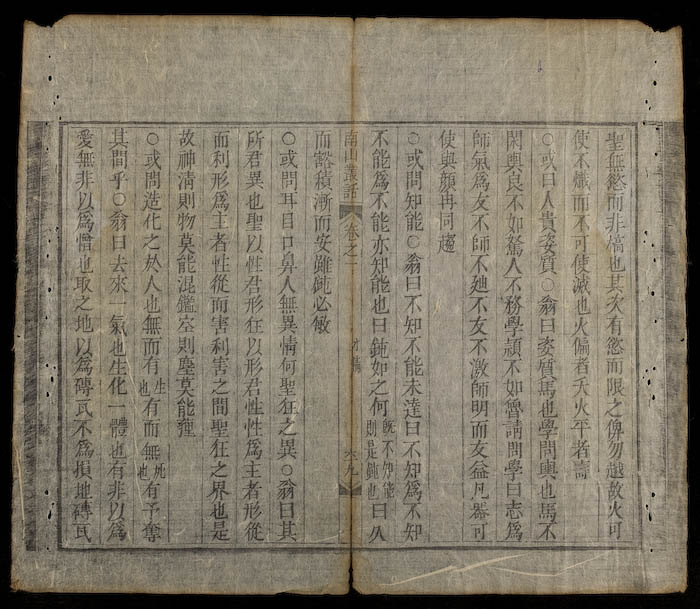 聖無慾而非槁也其次有慾而限之俾勿越故火可
使不熾而不可使滅也火偏者夭火平者壽
○或曰人貴姿質○翁曰姿質馬也學問輿也馬不
閑輿良不如駑人不務學頴不如魯請問學曰志爲
師氣爲友不師不廸不友不激師明而友益凡器可
使與顔冉同趨
○或問知能○翁曰不知不能未達曰不知爲不知
不能爲不能亦知能也曰鈍如之何既不知能則是鈍也曰久
南山叢話 卷之一
而豁積漸而安雖鈍必敏
○或問耳目口鼻人無異情何聖狂之異○翁曰其
所君異也聖以性君形狂以形君性性爲主者形從
而利形爲主者性從而害利害之間聖狂之界也是
故神淸則物莫能混鑑空則塵莫能
○或問造化之於人也無而有生也有而無死也有予奪
其間乎○翁曰去來一氣也生化一體也有非以爲
愛無非以爲憎也取之地以爲磚瓦不爲損地磚瓦